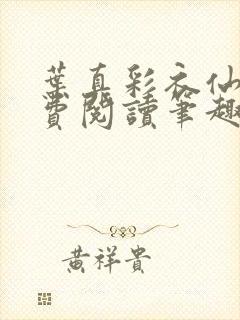 葉真彩衣仙
費閱讀筆趣
黃祥貴